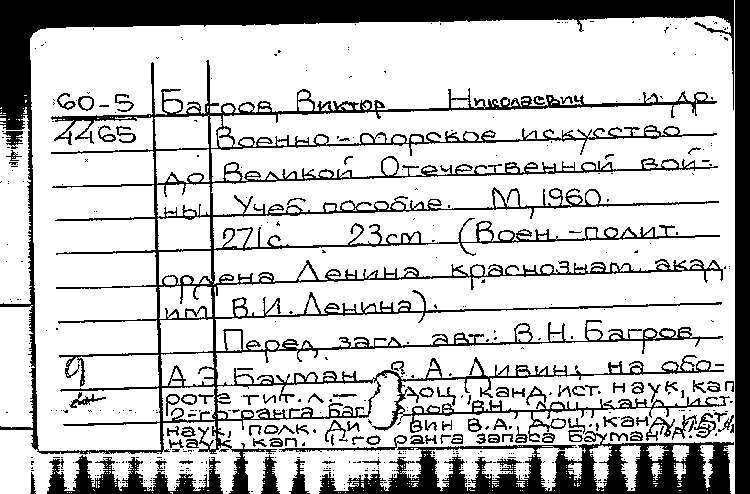 60-5 Багров, Виктор Николаевич и др.
4465 Военно-морское искусство
до Великой Отечественной вой-
ны. Учеб. пособие. М., 1960.
271с. 23см. (Воен.-полит.
ордена Ленина краснознам. акад.
им. В.И. Ленина).
Перед загл. авт.: В.Н. Багров,
9 А.Э. Бауман, В.А. Дивин; на обо-
роте тит. л.- доц., канд. ист. наук, кап.
2-го ранга Багров В.Н., доц., канд. ист.
наук, полк. Дивин В.А., доц., канд. ист.
наук, кап. 1-го ранга запаса Бауман А.Э.